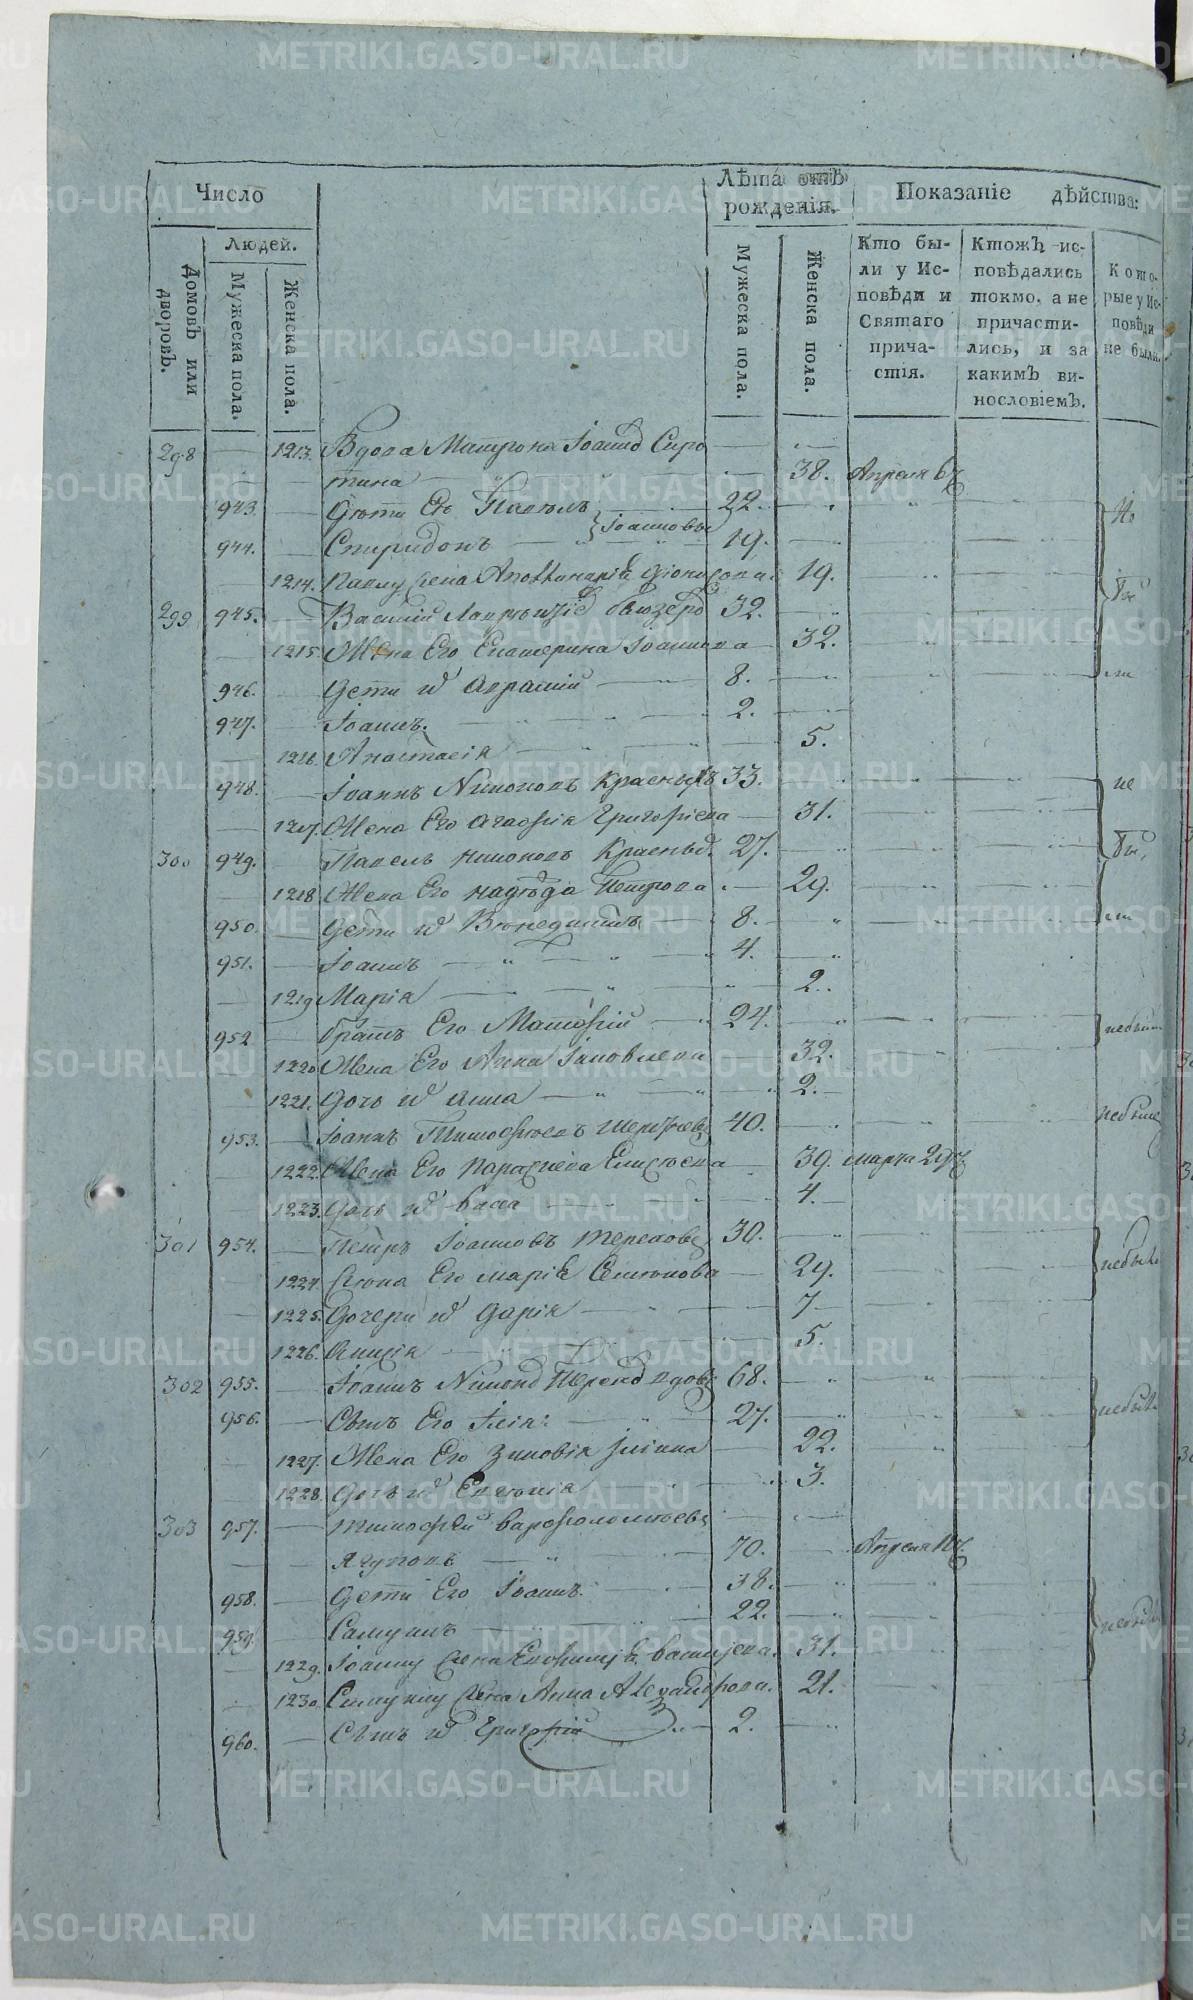 Число
Лѣта отъ рожденія.
Показаніе дѣйства:
Людей.
Домовъ или дворовъ.
Мужеска пола.
Женска пола.
Мужеска пола.
Женска пола.
Кто бы-
ли у Ис-
повѣди и
Святаго
прича-
стія.
Ктожъ ис-
повѣдались
токмо, а не
причасти-
лись, и за
какимъ ви-
нословіемъ.
Кото-
рые у Ис-
повѣди
не были.
298 1213. Вдова Матрона Сиро
тина 38. Апреля 6
943. Дѣти Ея Павелъ 22.
Іоанновы
944. Спиридонъ 19.
1214. Павлу жена 19.
299 945. Василій 32.
1215. Жена Его Екатерина Іоаннова 32.
946. Дети их Авраамій 8.
947. Іоаннъ. 2.
1216. Анастасія 5.
948. Іоаннъ Красныхъ 33. не
1217. Жена Его Агафія Григоріева 31.
300 949. Павелъ Красных. 27.
1218 Жена Его Надѣжда Петрова 29.
950. Дети их 8.
951. Іоаннъ 4.
1219 Марія 2.
952 братъ Его Матфій 24. небыли
1220 Жена Его Анна Іаковлева 32.
1221. Дочь их Анна 2.
953. Іоаннъ Тимофѣевъ 40.
1222. Жена Его Параскева Елисѣева 39. марта 29
1223. Дочь их 4.
301 954. Петръ Іоанновъ Тереховъ 30. небыли
1224. Жена Его Марія Семенова 29.
1225. Дочери их Дарія 7
1226. 5.
302 955. Іоаннъ вдовъ 68. небыли
956. Сынъ Его Ілія 27.
1227. Жена Его Зиновія Іліина 22.
1228. Дочь их Евгенія 3.
303 957. Тимофѣй Варфоломѣевъ
Ягуповъ 70. Апреля 10
958. Дети Его Іоаннъ 38. небыли
959. Самуилъ 22.
1229. Іоанну жена Васильева. 31.
1230. Самуилу жена Анна Александрова. 21.
960. Сынъ их Григорій 2.
METRIKI.GASO-URAL.RU